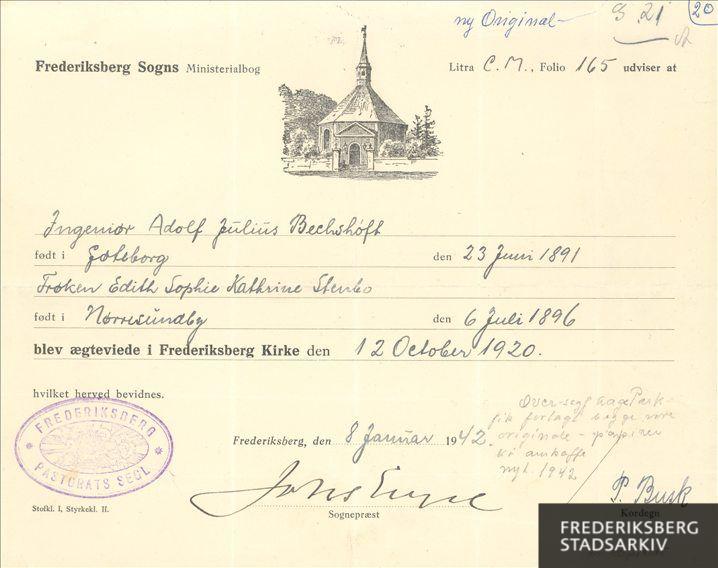 ny Original
S. 21
20
Frederiksberg Sogns Ministerialbog
Litra C. M., Folio 165 udviser at
Ingeniør Adolf Julius Bechshöft
født i Gøteborg den 23 Juni 1891
Frøken Edith Sophie Kathrine Stenbo
født i Nørresundby den 6 Juli 1896
blev ægteviede i Frederiksberg Kirke den 12 October 1920.
hvilket herved bevidnes.
FREDERIKSBERG
PASTORATS SEGL
Frederiksberg, den 8 Januar 1942.
Sognepræst
P. Busk
Kordegn
originale - papirer
nyt. 1942
Stofkl. I, Styrkekl. II.
FREDERIKSBERG
STADSARKIV